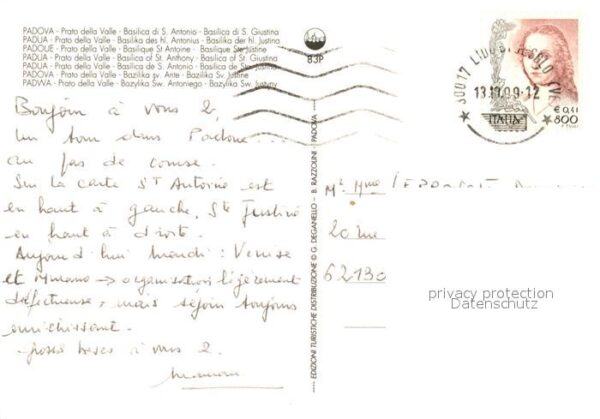 PADOVA - Prato della Valle - Basilica di S. Antonio - Basilica di S. Giustina
PADUA - Prato della Valle - Basilika des hl. Antonius - Basilika der hl. Justina
PADOUE - Prato della Valle - Basilique St Antoine - Basilique Ste Justine
PADUA - Prato della Valle - Basilica of St. Anthony - Basilica of St. Giustina
PADUA - Prato della Valle - Basilica de S. Antonio - Basilica de Sta. Justina
PADOVA - Prato della Valle - Bazilika sv. Ante - Bazilika Sv. Justine
PADWA - Prato della Valle - Bazylika Sw. Antoniego - Bazylika Sw. Justyny
83P
30017 LIDO DI JESOLO (VE)
13.10.99-12
ITALIA
€ 0,41
800
Bonjour à vous 2,
Un tour dans Padoue...
au pas de course.
Sur la carte St Antoine est
en haut à gauche, Ste Justine
en haut à droite.
Aujourd'hui mardi : Venise
et Murano → organisation légèrement
défectueuse, mais séjour toujours
enrichissant.
grosses bises à vous 2.
EDIZIONI TURISTICHE DISTRIBUZIONE © G. DEGANELLO - B. RAZZOLINI - PADOVA
Mr Mme
20 rue
62130
privacy protection
Datenschutz